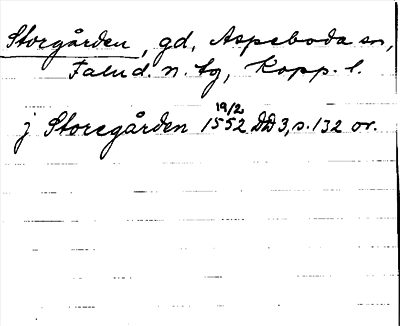 Storgården, gd, Aspeboda sn,
Falud. n. tg, Kopp. l.
19/2
j Storegården 1552 DD3, s. 132 or.